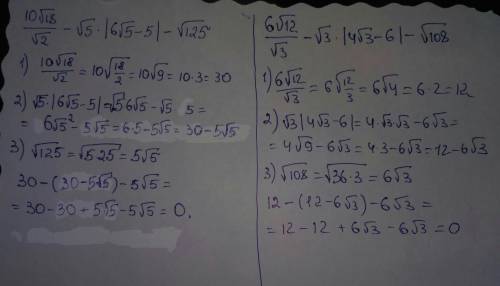 10√18/√2 − √5 · |6√5−5| − √125
1) 10√18/√2 = 10√18/2 = 10√9 = 10·3 = 30
2) √5·|6√5−5| = √5 6√5 − √5 5 =
= 6√5² − 5√5 = 6·5 − 5√5 = 30 − 5√5
3) √125 = √5·25 = 5√5
30 − (30 − 5√5) − 5√5 =
= 30 − 30 + 5√5 − 5√5 = 0.
6√12/√3 − √3 · |4√3−6| − √108
1) 6√12/√3 = 6√12/3 = 6√4 = 6·2 = 12
2) √3|4√3−6| = 4·√3√3 − 6√3 =
= 4√9 − 6√3 = 4·3 − 6√3 = 12 − 6√3
3) √108 = √36·3 = 6√3
12 − (12 − 6√3) − 6√3 =
= 12 − 12 + 6√3 − 6√3 = 0